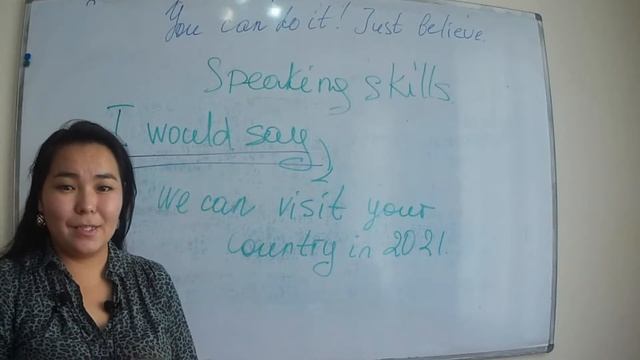 You can do it! Just believe.
Speaking skills
I would say
we can visit your
country in 2021.